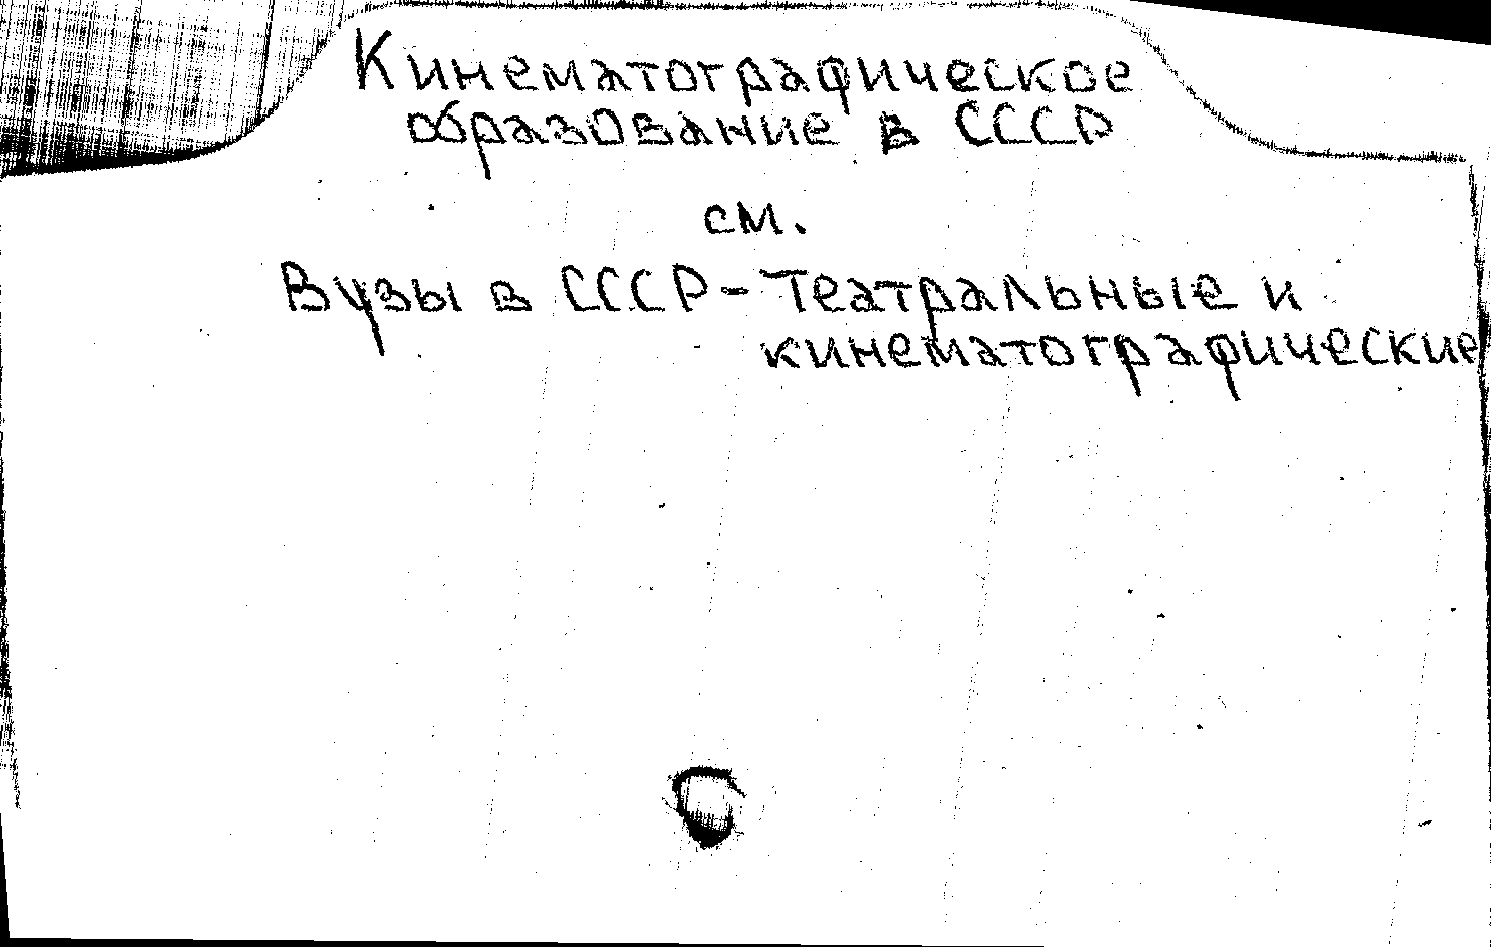 Кинематографическое
образование в СССР
см.
Вузы в СССР - Театральные и
кинематографические